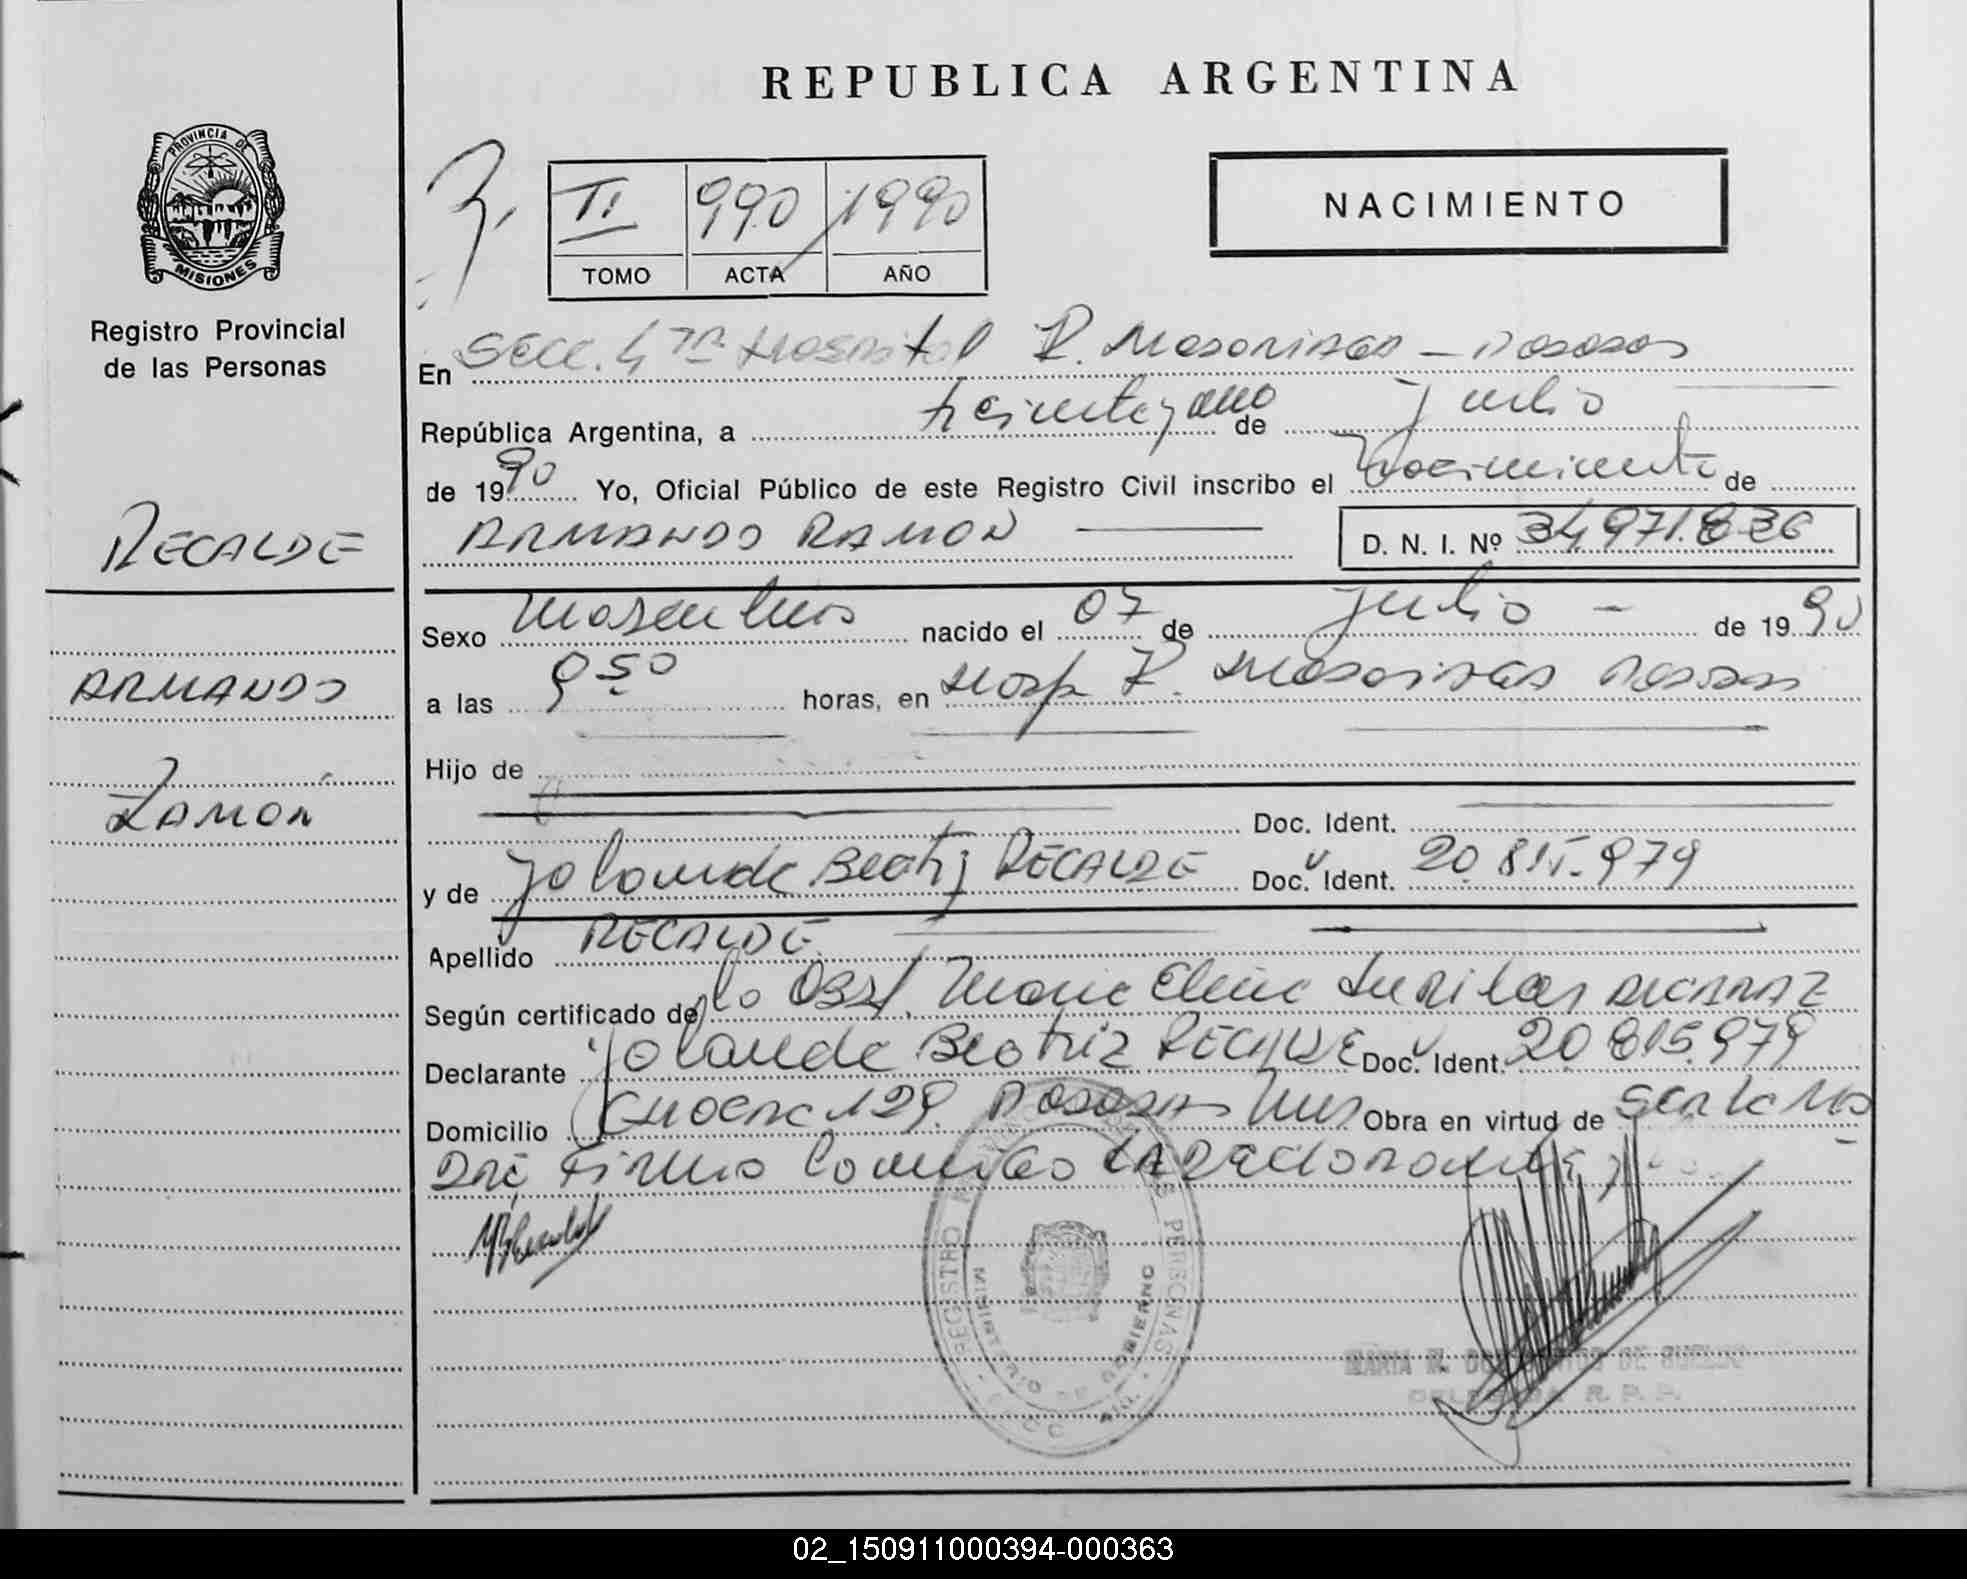 REPUBLICA ARGENTINA
PROVINCIA DE
MISIONES
Registro Provincial
de las Personas
II 990 1990
TOMO ACTA AÑO
NACIMIENTO
En Secc. 4ta Hospital R. Madariaga - Posadas
República Argentina, a treinta y uno de Julio
de 1990 Yo, Oficial Público de este Registro Civil inscribo el Nacimiento de
ARMANDO RAMON D. N. I. Nº 34.971.836
RECALDE
ARMANDO
RAMON
Sexo Masculino nacido el 07 de Julio - de 1990
a las 9 50 horas, en Hosp R. Madariaga Posadas
Hijo de
Doc. Ident.
y de Yolanda Beatriz RECALDE Doc. Ident. 20.815.979
Apellido RECALDE
Según certificado de la Obst. Maria Elena ALCARAZ
Declarante Yolanda Beatriz RECALDE Doc. Ident. 20.815.979
Domicilio 129. Posadas Mnes Obra en virtud de ser la Ma
dre, Firma Conmigo LA Declarante
REGISTRO PROVINCIAL DE LAS PERSONAS
MINISTERIO DE GOBIERNO
MARIA DE
DELEGADA R. P. P.
02_150911000394-000363